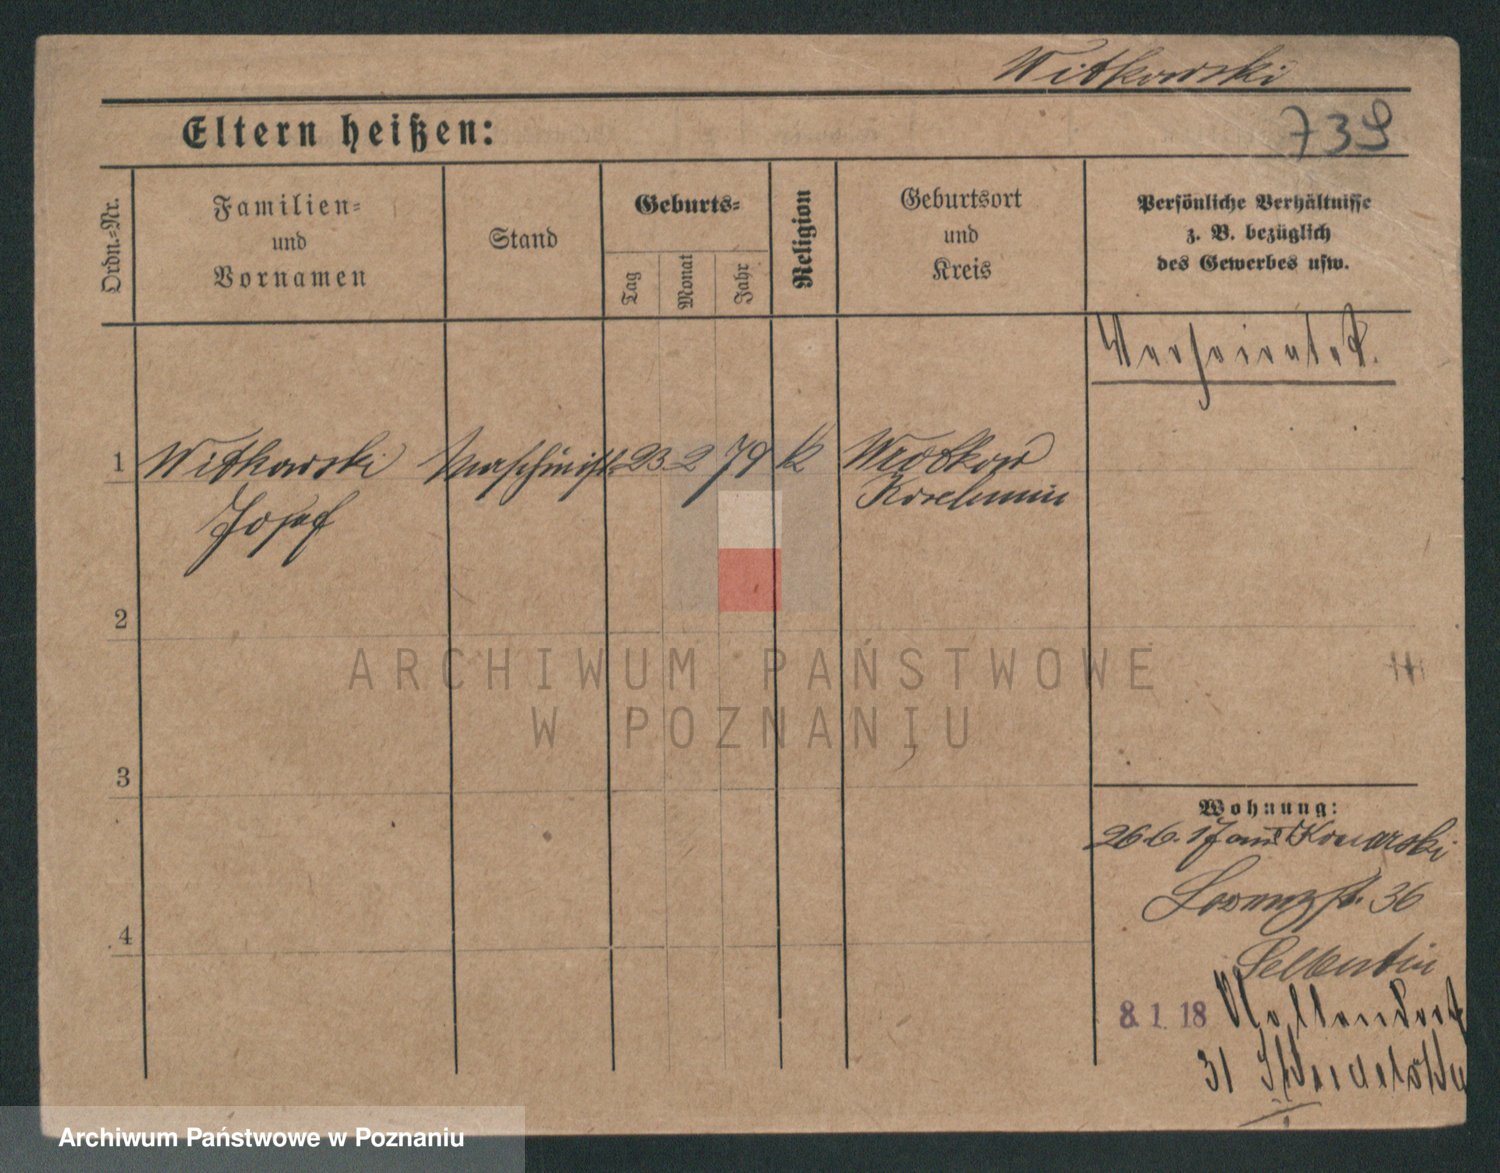 Witkowski
739
Eltern heißen:
Ordn.=Nr.
Familien=
und
Vornamen
Stand
Geburts=
Tag
Monat
Jahr
Religion
Geburtsort
und
Kreis
Persönliche Verhältnisse
z. B. bezüglich
des Gewerbes usw.
Verheiratet.
1 Witkowski Maschinist 23 2 79 k Wrotkow
Josef Koschmin
2
3
4
ARCHIWUM PAŃSTWOWE
W POZNANIU
Wohnung:
26.6.17 aus
36
8. 1. 18
31
Archiwum Państwowe w Poznaniu